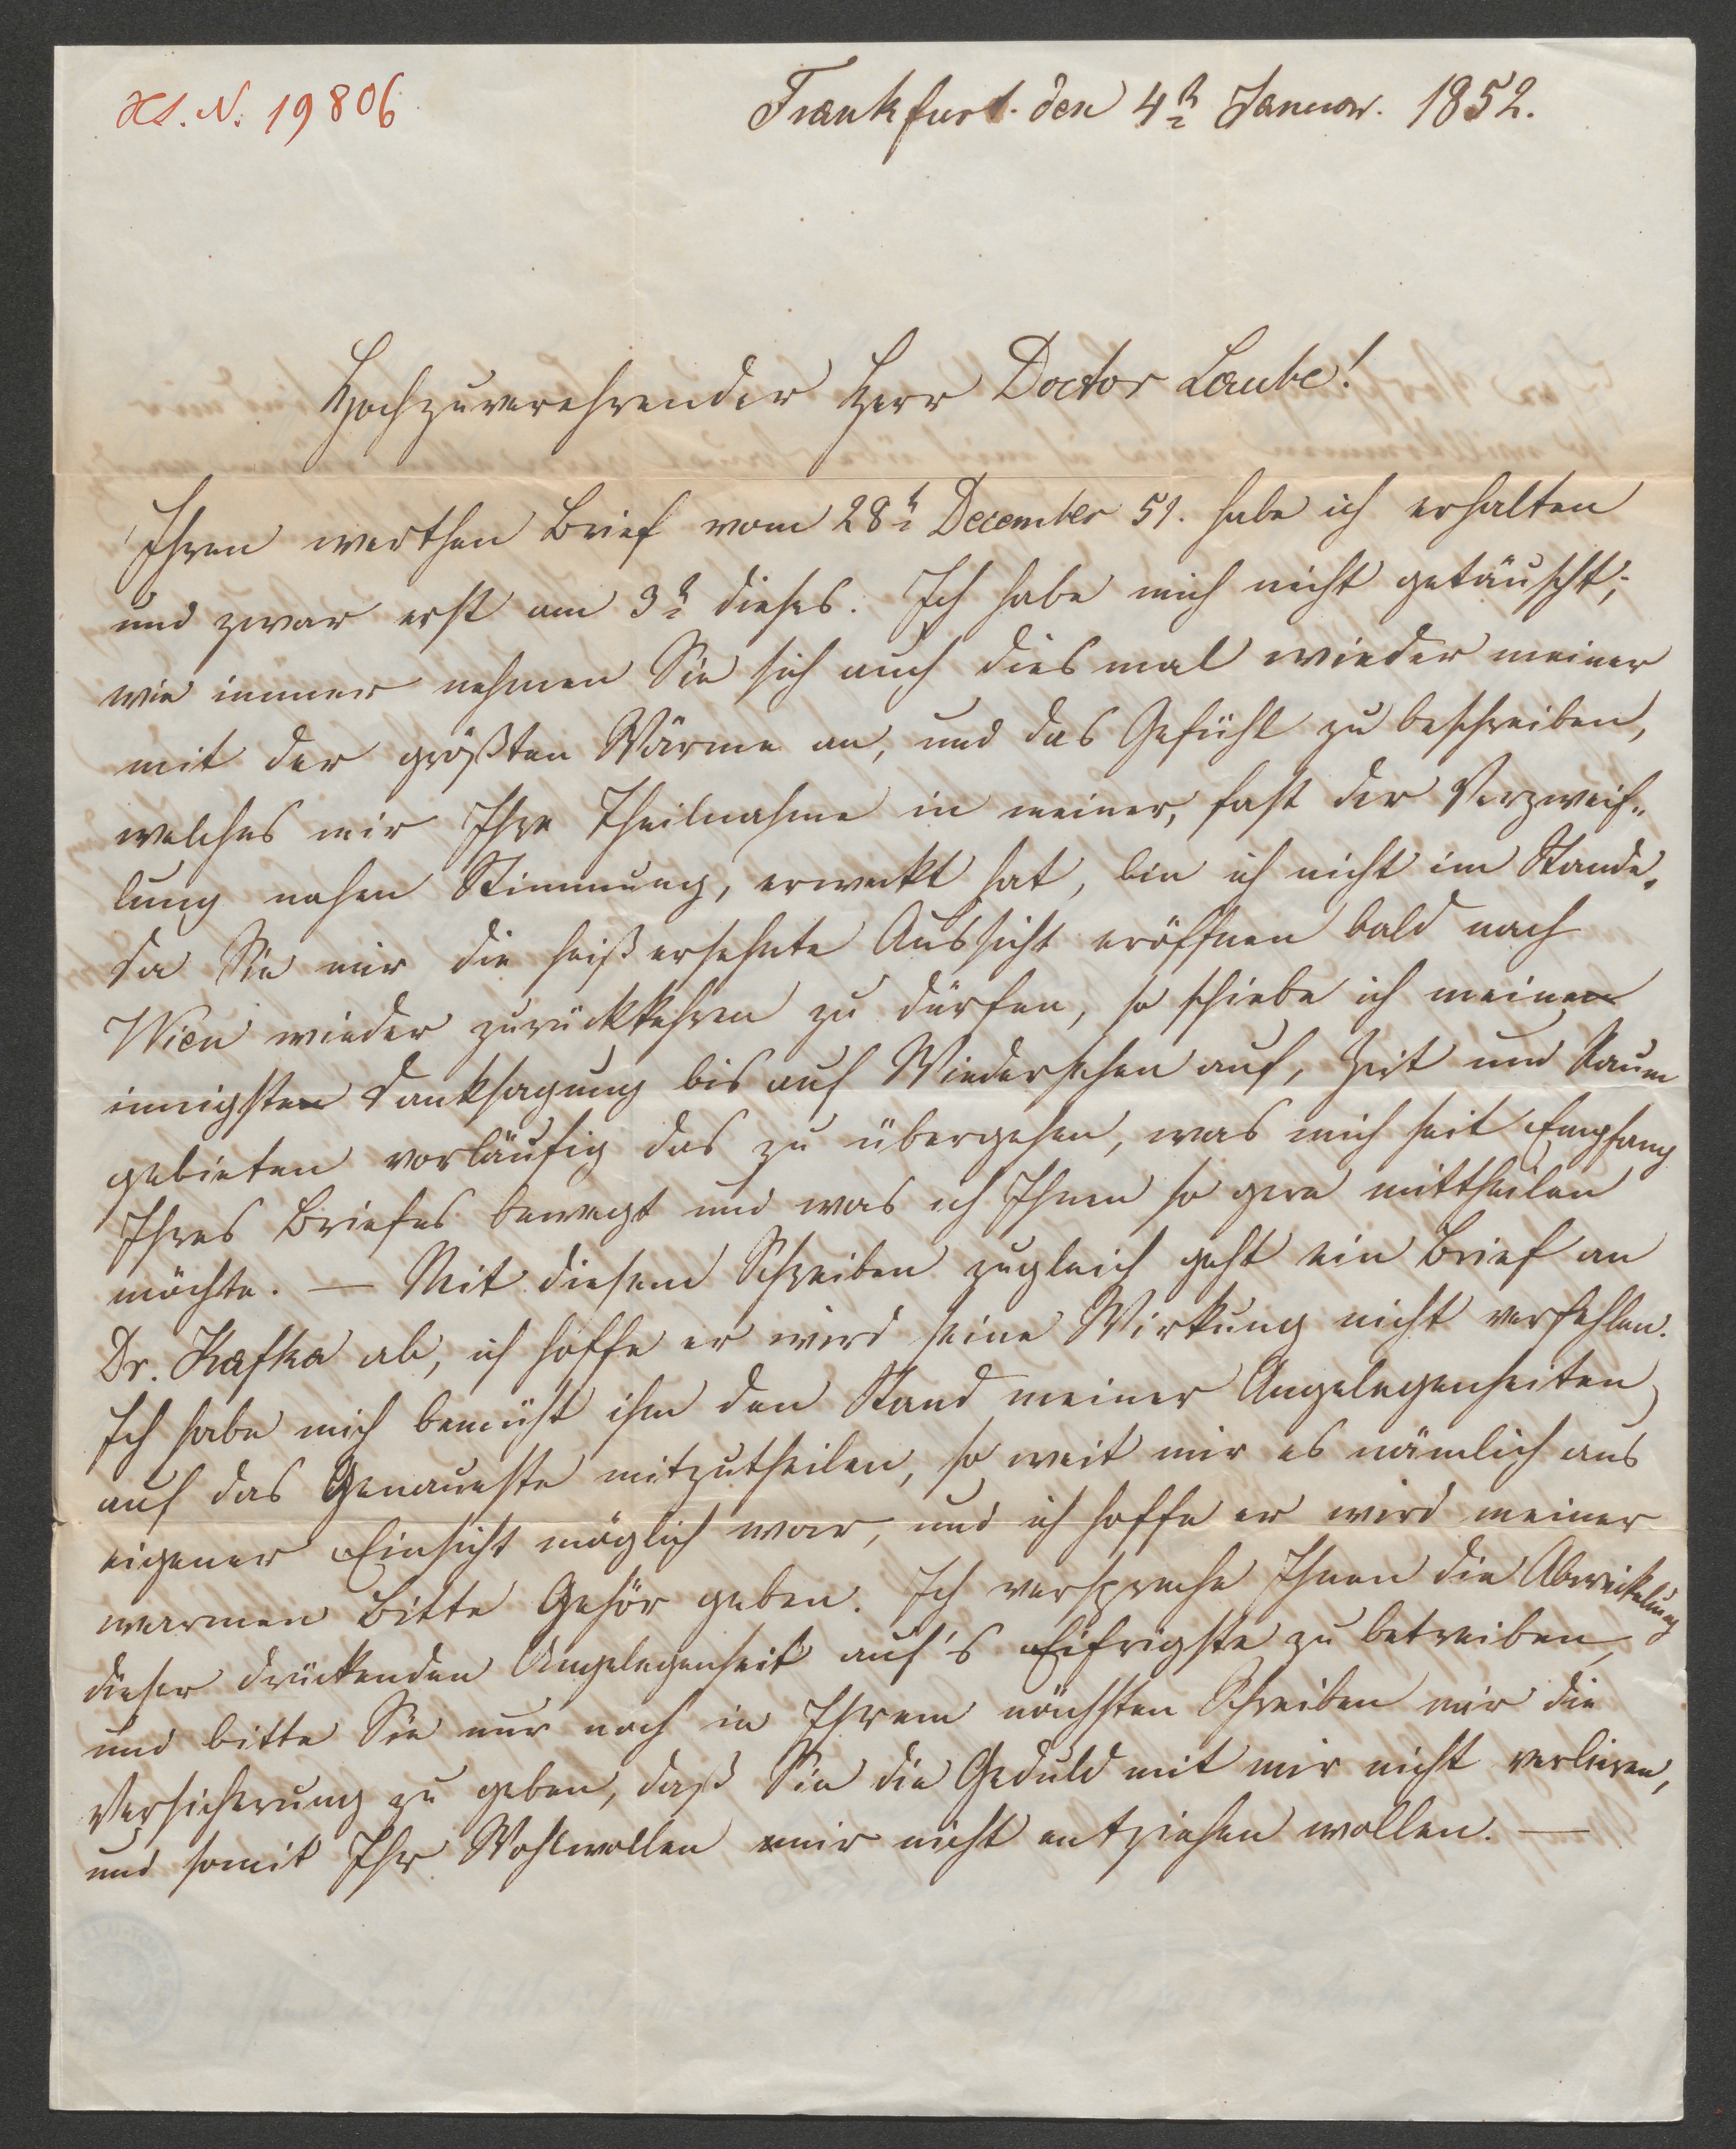 H.S. N. 19806
Frankfurt den 4n Januar. 1852.
Hochzuverehrender Herr Doctor Laube!
Ihren werthen Brief vom 28t December 51. habe ich erhalten
und zwar erst am 3t dieses. Ich habe mich nicht getäuscht;
wie immer nehmen Sie sich auch diesmal wieder meiner
mit der größten Wärme an, und das Gefühl zu beschreiben,
welches mir Ihre Theilnahme in meiner, fast der Verzweif-
lung nahen Stimmung, erweckt hat, bin ich nicht im Stande.
Da Sie mir die heißersehnte Aussicht eröffnen bald nach
Wien wieder zurückkehren zu dürfen, so schiebe ich meine
innigste Danksagung bis auf Wiedersehen auf, Zeit und Raum
gebieten vorläufig das zu übergehen, was mich seit Empfang
Ihres Briefes bewegt und was ich Ihnen so gern mittheilen
möchte. — Mit diesem Schreiben zugleich geht ein Brief an
Dr. Kafka ab, ich hoffe er wird seine Wirkung nicht verfehlen.
Ich habe mich bemüht ihm den Stand meiner Angelegenheiten
auf das Genaueste mitzutheilen, so weit mir es nämlich aus
eigener Einsicht möglich war, und ich hoffe er wird meiner
warmen Bitte Gehör geben. Ich verspreche Ihnen die Abwickelung
dieser drückenden Angelegenheit auf's Eifrigste zu betreiben,
und bitte Sie nur noch in Ihrem nächsten Schreiben mir die
Versicherung zu geben, daß Sie die Geduld mit mir nicht verlieren,
und somit Ihr Wohlwollen mir nicht entziehen wollen. —